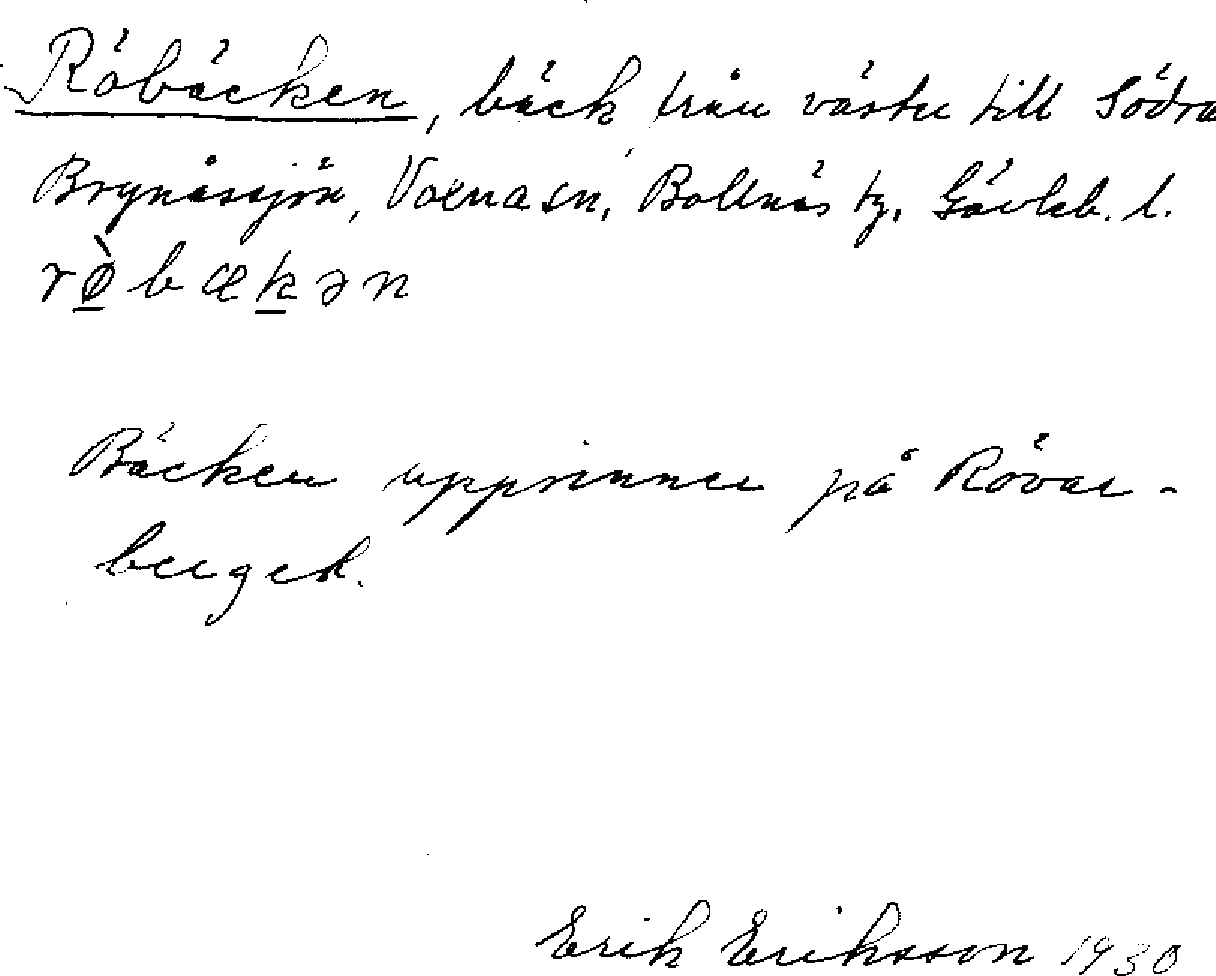 Röbäcken, bäck från väster till Södra
Brynåssjön, Voxna sn, Bollnäs tg, Gävleb. l.
rø̱̀bæḵən
Bäcken upprinner på Rövar-
berget.
Erik Eriksson 1930